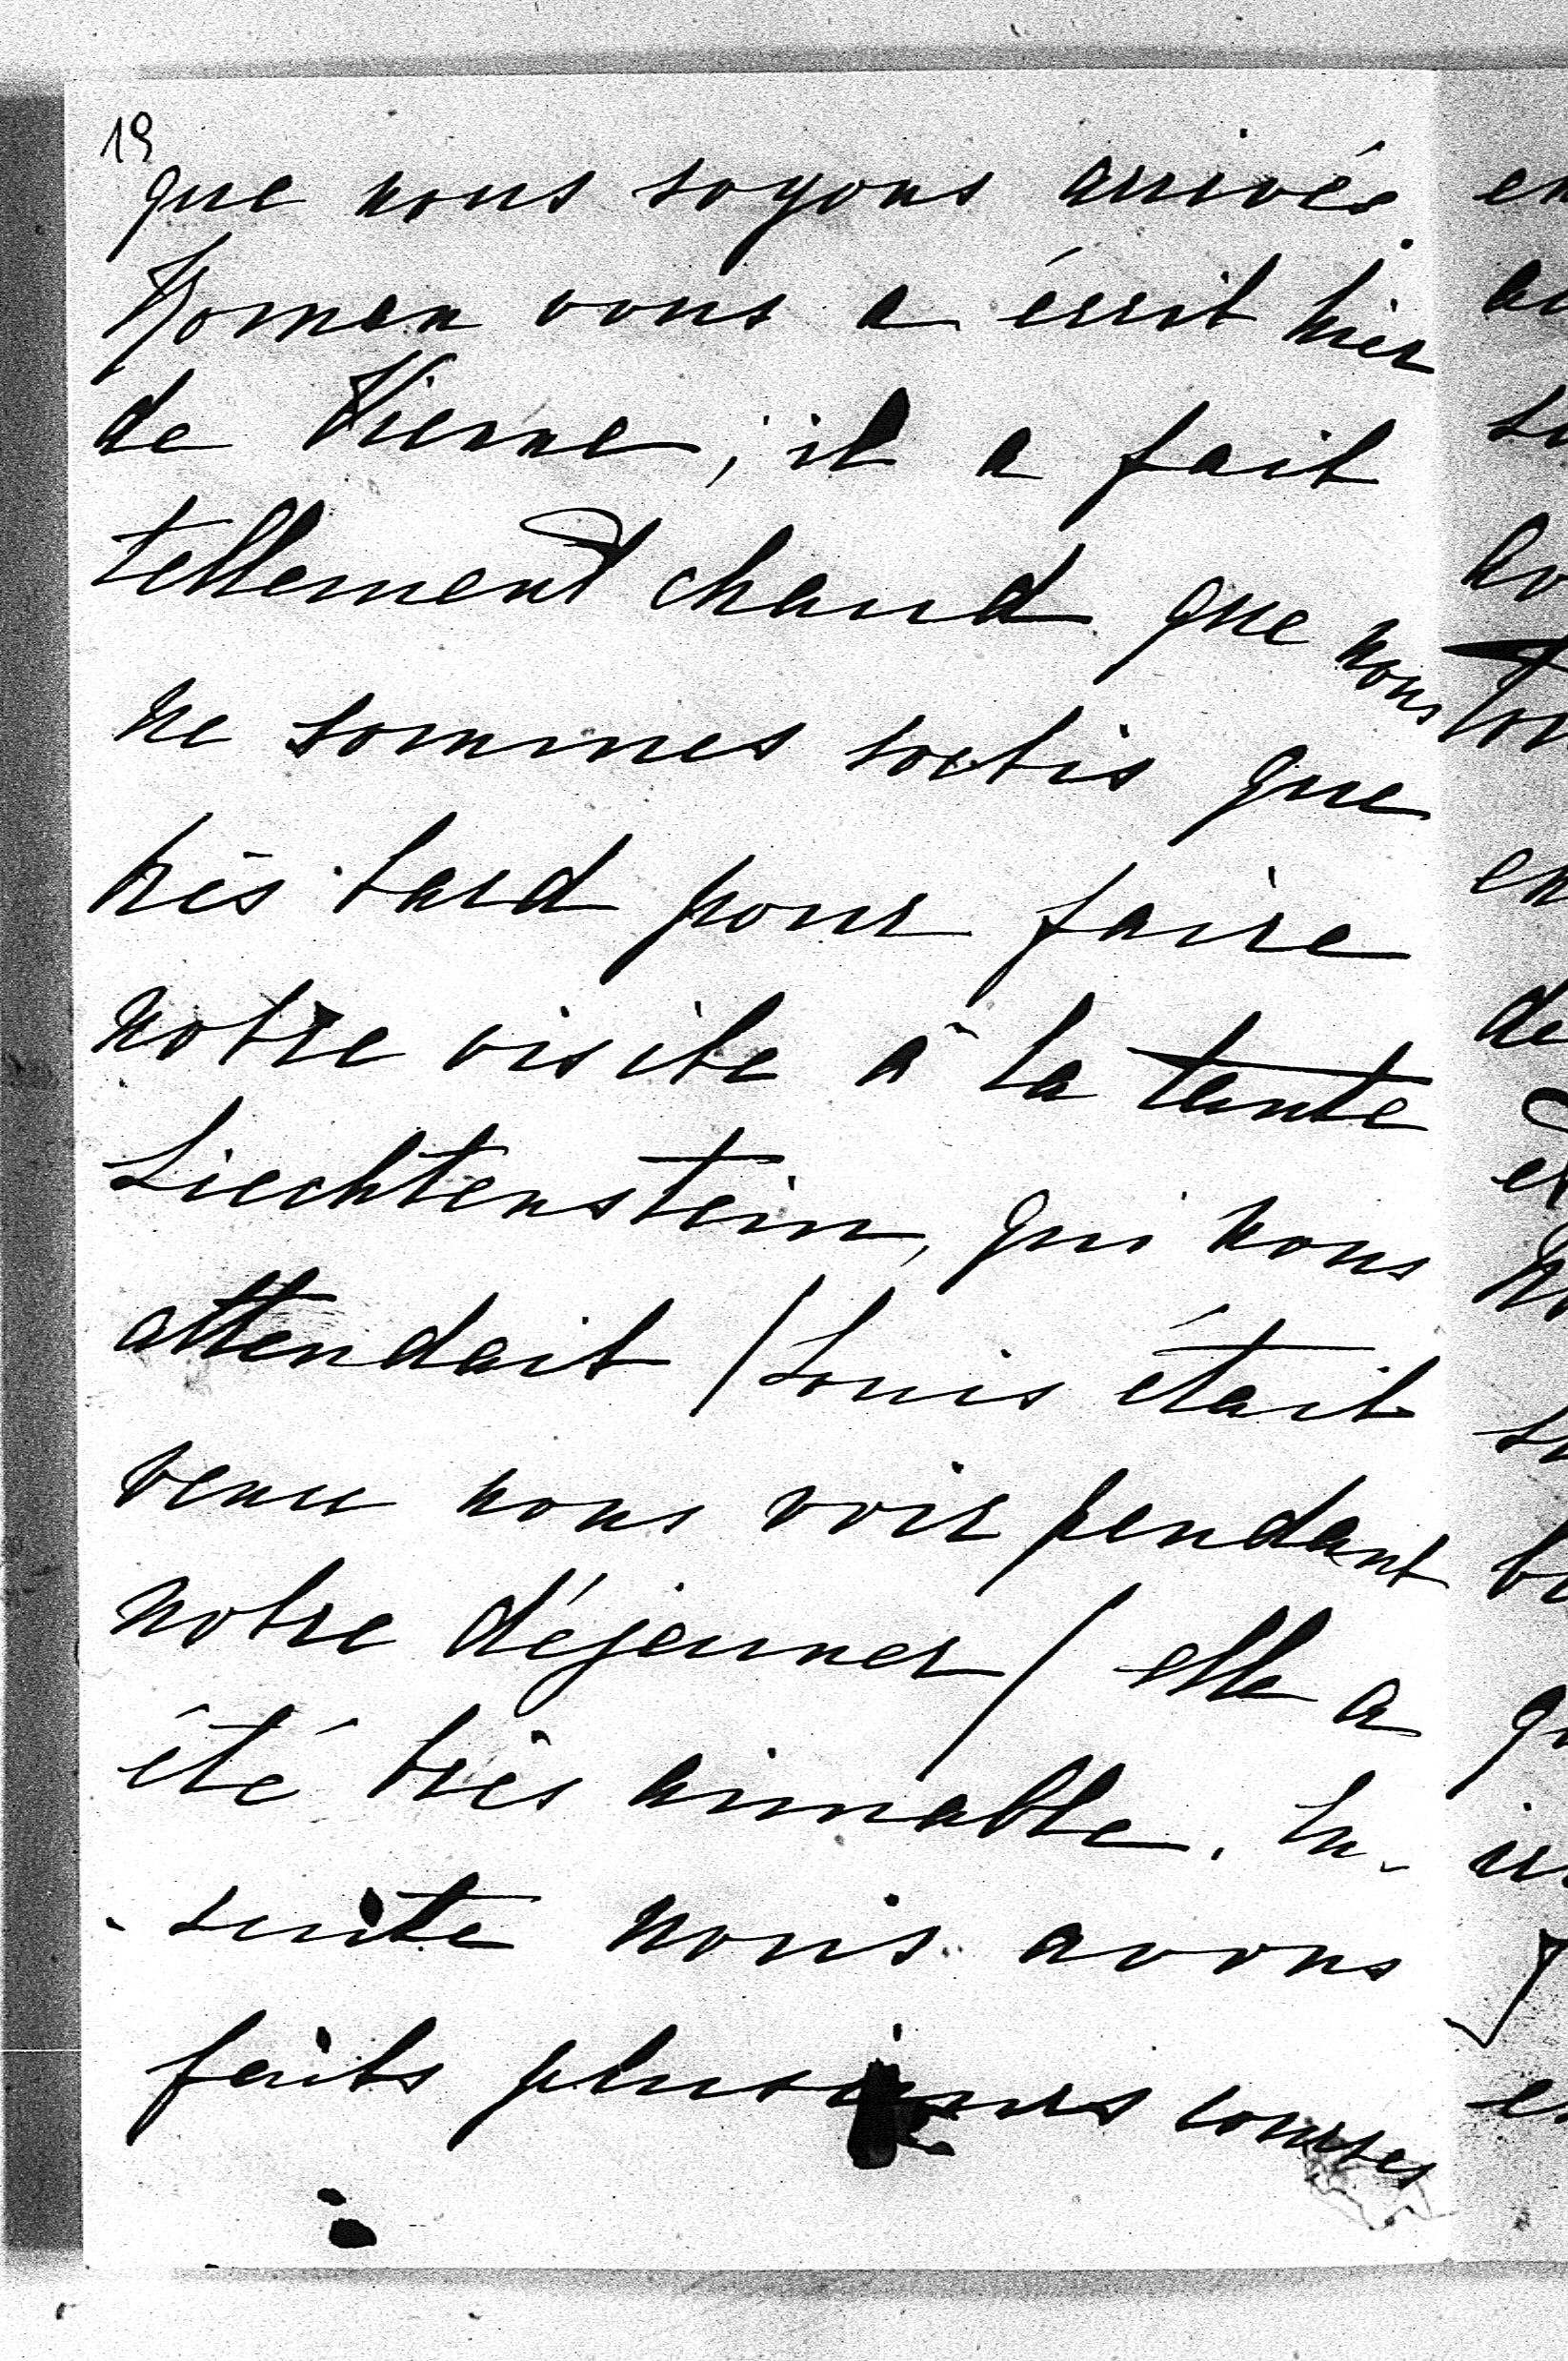 19
que nous soyons arrivés.
Roman vous a écrit hier
de Vienne, il a fait
tellement chaud que nous
ne sommes sortis que
très tard pour faire
notre visite à la tante
Liechtenstein, qui nous
attendait / Louis était
venu nous voir pendant
notre déjeuner / elle a
été très aimable. En-
-suite nous avons
faits plusieurs courses